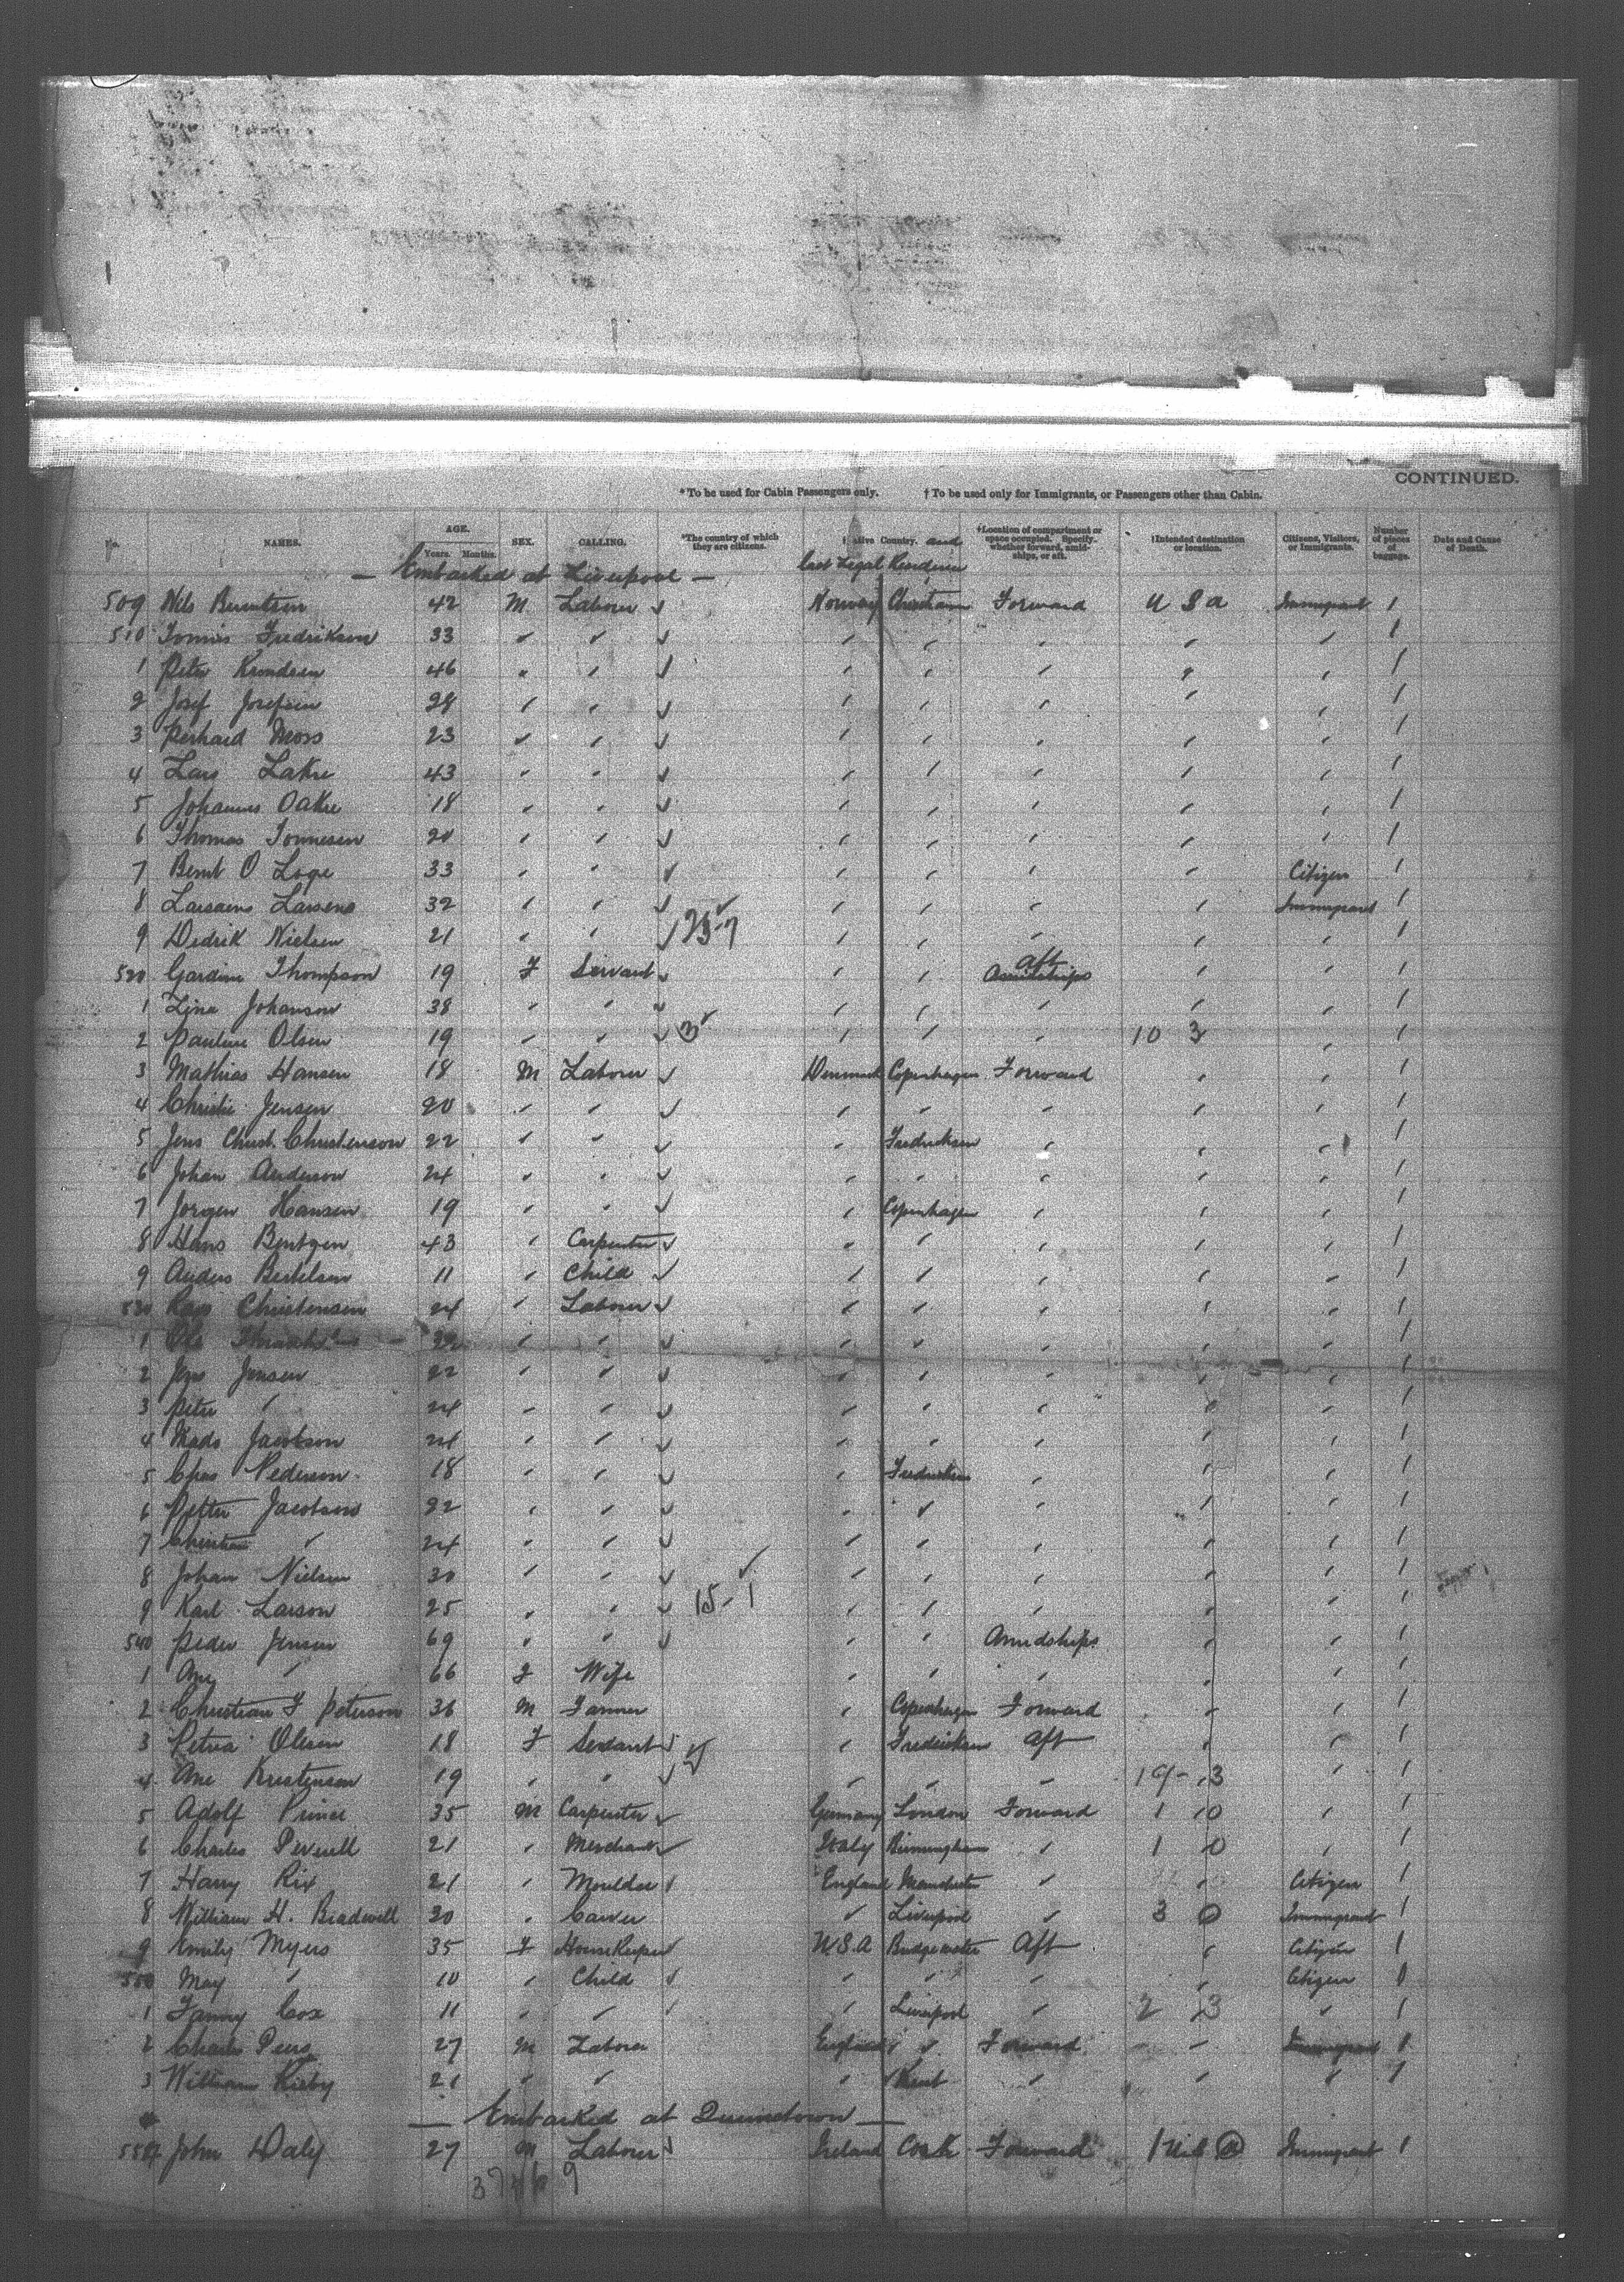 CONTINUED.
*To be used for Cabin Passengers only. †To be used only for Immigrants, or Passengers other than Cabin.
NAMES. AGE. Years. Months. SEX. CALLING. *The country of which they are citizens. Native Country, and last Legal Residence †Location of compartment or space occupied. Specify whether forward, amidships, or aft. †Intended destination or location. Citizens, Visitors, or Immigrants. Number of pieces of baggage. Date and Cause of Death.
— Embarked at Liverpool —
509 Nils Berntsen 42 M Labourer Norway Forward U S A Immigrant 1
510 Fredrikson 33 " " " " " " " 1
1 Peter 46 " " " " " " " 1
2 Josef Josefsen 28 " " " " " " " 1
3 Moss 23 " " " " " " " 1
4 Lars 43 " " " " " " " 1
5 Johannes Oakre 18 " " " " " " " 1
6 Thomas Tonnesen 20 " " " " " " " 1
7 Bernt O Loge 33 " " " " " " Citizen 1
8 32 " " " " " " Immigrant 1
9 Didrik Nielsen 21 " " 23-7 " " " " " 1
520 Thompson 19 F Servant " " Aft Amidships " " 1
1 Lina Johanson 38 " " " " " " " 1
2 Pauline Olsen 19 " " 3 " " " 10 3 " 1
3 Mathias Hansen 18 M Labourer Denmark Copenhagen Forward " " 1
4 Christie Jensen 20 " " " " " " " 1
5 Jens Christ. Christenson 22 " " " " " " 1
6 Johan Anderson 24 " " " " " " " 1
7 Jorgen Hansen 19 " " " Copenhagen " " " 1
8 Hans Bentzen 43 " Carpenter " " " " " 1
9 Anders Bertelsen 11 " Child " " " " " 1
530 Christensen 24 " Labourer " " " " " 1
1 " " " " " " " 1
2 Jens Jensen 22 " " " " " " " 1
3 Peter " 24 " " " " " " " 1
4 Mads Jacobson 24 " " " " " " " 1
5 Chas Pederson 18 " " " " " " 1
6 Jacobson 22 " " " " " " " 1
7 Christian " 24 " " " " " " " 1
8 Johan Nielsen 30 " " " " " " " 1
9 Karl Larson 25 " " 15-1 " " " " " 1
540 Peder Jensen 69 " " " " Amidships " " 1
1 Ane " 66 F Wife " " " " " 1
2 Christian F Peterson 36 M Farmer " Copenhagen Forward " " 1
3 Petrea Olesen 18 F Servant " Aft " " 1
4 Ane Kristensen 19 " " " " " 19- 3 " 1
5 Adolf Prince 35 M Carpenter Germany London Forward 1 0 " 1
6 Charles 21 " Merchant Italy Birmingham " 1 0 " 1
7 Harry Rix 21 " Moulder England Manchester " " Citizen 1
8 William H. Bradwell 30 " Carver " Liverpool " 3 0 Immigrant 1
9 Emily Myers 35 F Housekeeper U.S.A Bridgewater Aft " Citizen 1
550 May " 10 " Child " " " " Citizen 1
1 Fanny Cox 11 " " " Liverpool " 2 3 " 1
2 Charles 27 M Labourer England " Forward " Immigrant 1
3 William Kirby 21 " " " Kent " " " 1
— Embarked at Queenstown —
554 John Daly 27 M Labourer Ireland Cork Forward 1 Immigrant 1